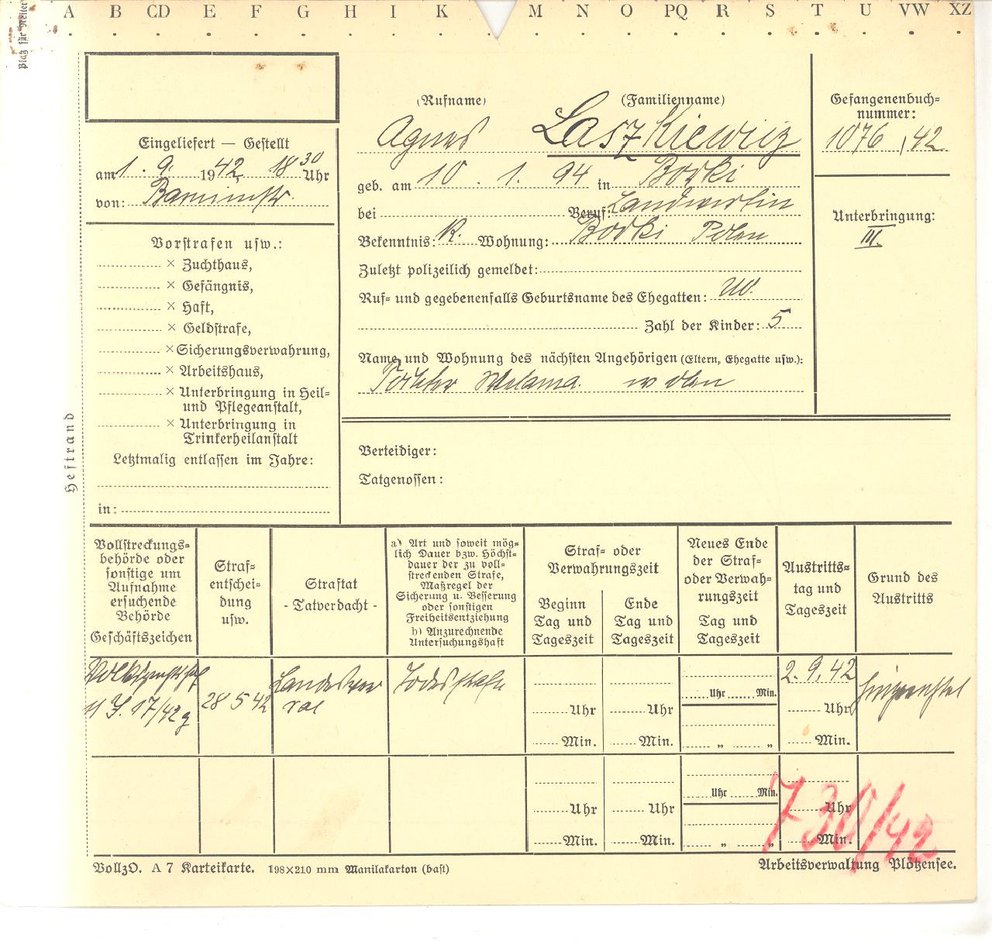 A B CD E F G H I K M N O PQ R S T U VW XZ
Platz für Reiter
(Rufname) (Familienname)
Agnes Laszkiewicz
Gefangenenbuch=
nummer:
1076/42
Eingeliefert — Gestellt
am 1. 9. 1942 18 30 Uhr
von: Barnimstr.
geb. am 10. 1. 94 in Borki
bei Beruf: Landwirtin
Bekenntnis: K. Wohnung: Borki Polen
Zuletzt polizeilich gemeldet:
Ruf= und gegebenenfalls Geburtsname des Ehegatten: Ww.
Zahl der Kinder: 5
Name und Wohnung des nächsten Angehörigen (Eltern, Ehegatte usw.):
Tochter w oben
Unterbringung:
III.
Vorstrafen usw.:
× Zuchthaus,
× Gefängnis,
× Haft,
× Geldstrafe,
× Sicherungsverwahrung,
× Arbeitshaus,
× Unterbringung in Heil=
und Pflegeanstalt,
× Unterbringung in
Trinkerheilanstalt
Letztmalig entlassen im Jahre:
in:
Heftrand
Verteidiger:
Tatgenossen:
Vollstreckungs=
behörde oder
sonstige um
Aufnahme
ersuchende
Behörde
Geschäftszeichen
Straf=
entschei=
dung
usw.
Straftat
- Tatverdacht -
a) Art und soweit mög=
lich Dauer bzw. Höchst=
dauer der zu voll=
streckenden Strafe,
Maßregel der
Sicherung u. Besserung
oder sonstigen
Freiheitsentziehung
b) Anzurechnende
Untersuchungshaft
Straf= oder
Verwahrungszeit
Beginn
Tag und
Tageszeit
Ende
Tag und
Tageszeit
Neues Ende
der Straf=
oder Verwah=
rungszeit
Tag und
Tageszeit
Austritts=
tag und
Tageszeit
Grund des
Austritts
Volksgerichtshof
11 J. 17/42 g
28 5 42
Landesver
rat
Todesstrafe
2. 9. 42
hingerichtet
Uhr Uhr Uhr Min. Uhr
Min. Min. „ „ Min.
Uhr Uhr Uhr Min. Uhr
Min. Min. „ „ Min.
730/42
VollzO. A 7 Karteikarte. 198×210 mm Manilakarton (bast)
Arbeitsverwaltung Plötzensee.